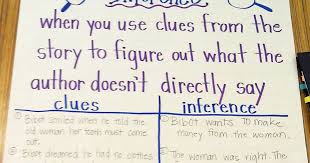 when you use clues from the
story to figure out what the
author doesn't directly say
clues inference
① Bibot smiled when he told the
old woman her tooth must come
out.
① Bibot wants to make
money from the woman.
② Bibot dreamed he had no clothes
② The woman was right. The